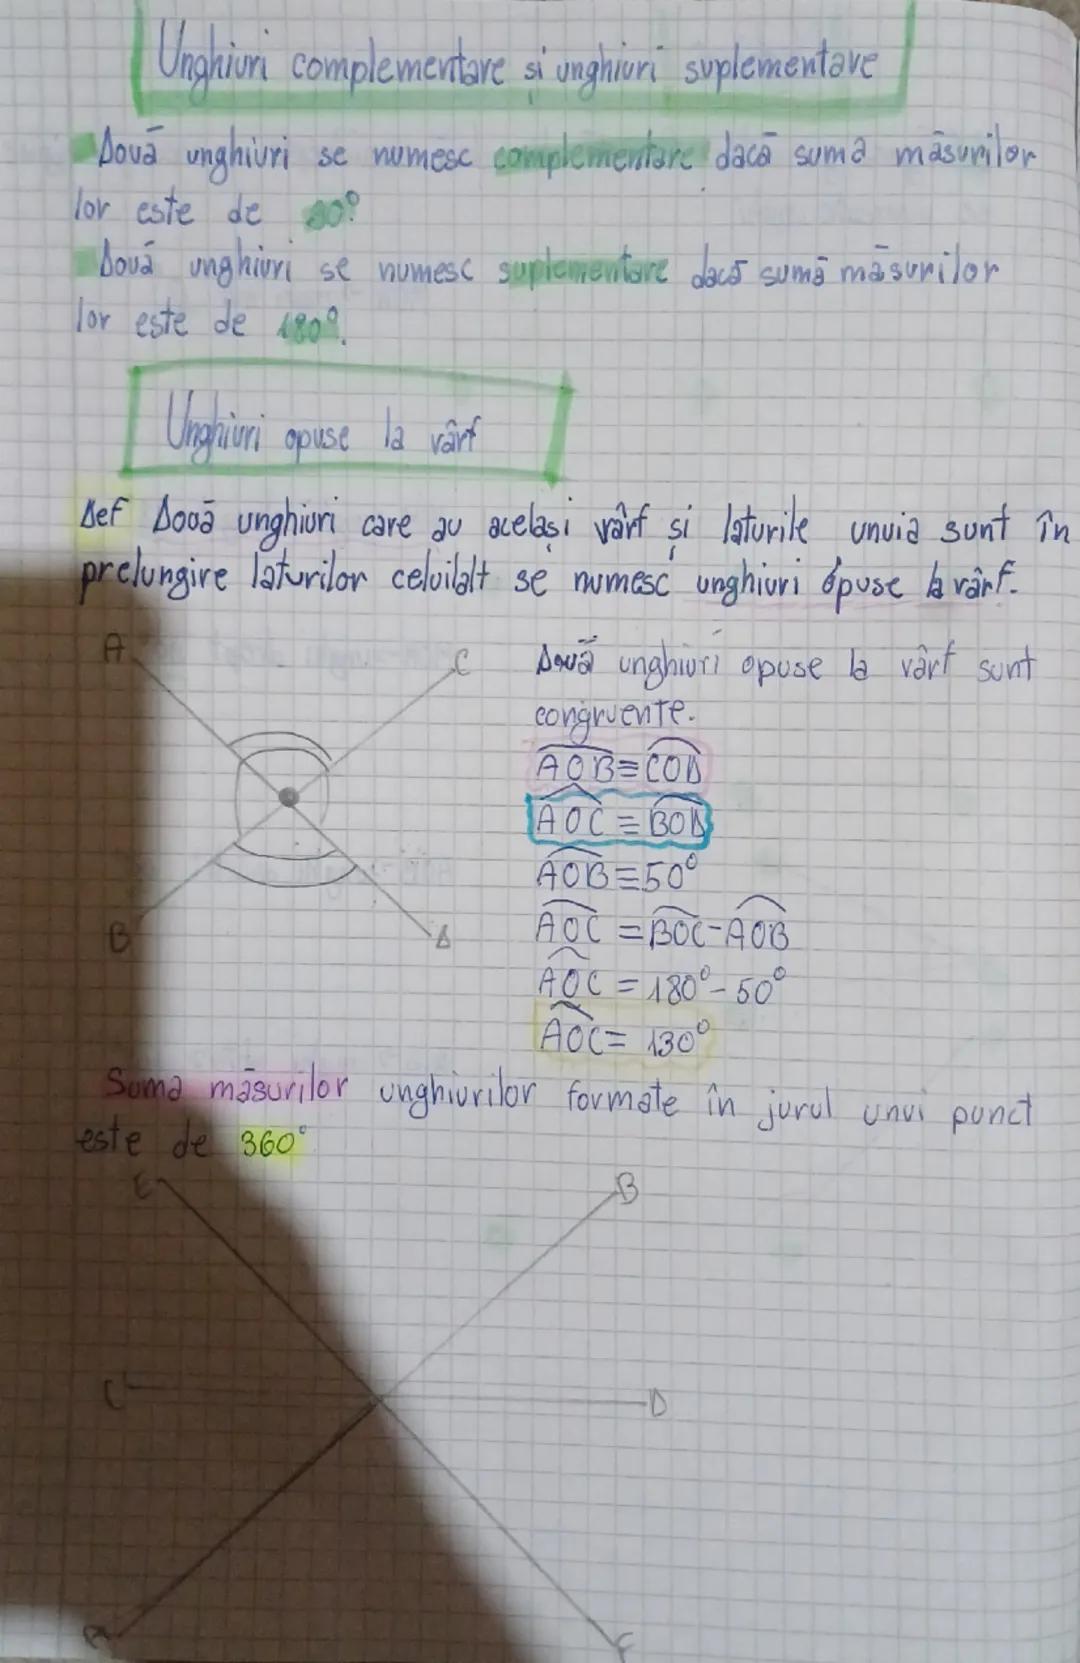 Unghiuri complementare și unghiuri suplementare
Două unghiuri se numesc complementare dacă suma măsurilor
lor este de 90°
Două unghiuri se numesc suplementare dacă sumă măsurilor
lor este de 180°.
Unghiuri opuse la vârf
Def Două unghiuri care au același vârf și laturile unuia sunt în
prelungire laturilor celuilalt se numesc unghiuri opuse la vârf.
A
C
B
D
Două unghiuri opuse la vârf sunt
congruente.
AOB≡COD
AOC=BOD
AOB=50°
AOC=BOC-AOB
AOC=180°-50°
AOC=130°
Suma măsurilor unghiurilor formate în jurul unui punct
este de 360°
E
B
C
D
A
F